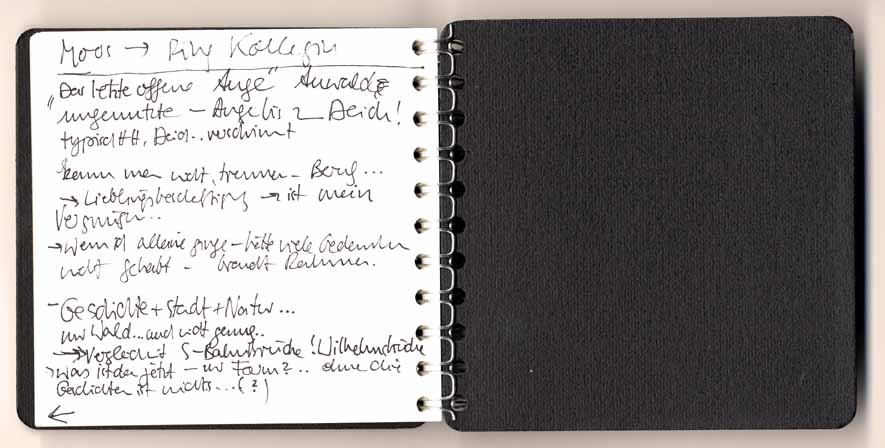 Moos → Kollegin
"Das letzte offene Auge" Auwald
ungenutzte – Deich!
typisch HH, Deich..
kann man nicht trennen – Beruf...
→ Lieblingsbeschäftigung → ist mein
Vergnügen...
→ Wenn alleine ginge – hätte viele Gedanken
nicht gehabt – braucht Rahmen.
– Geschichte + Stadt + Natur...
nur Wald... auch nicht genug..
→ Vergleicht S-Bahnbrücke! Wilhelmsbrücke
→ was ist da jetzt – nur Form?.. ohne die
Geschichten ist nichts...(?)
←